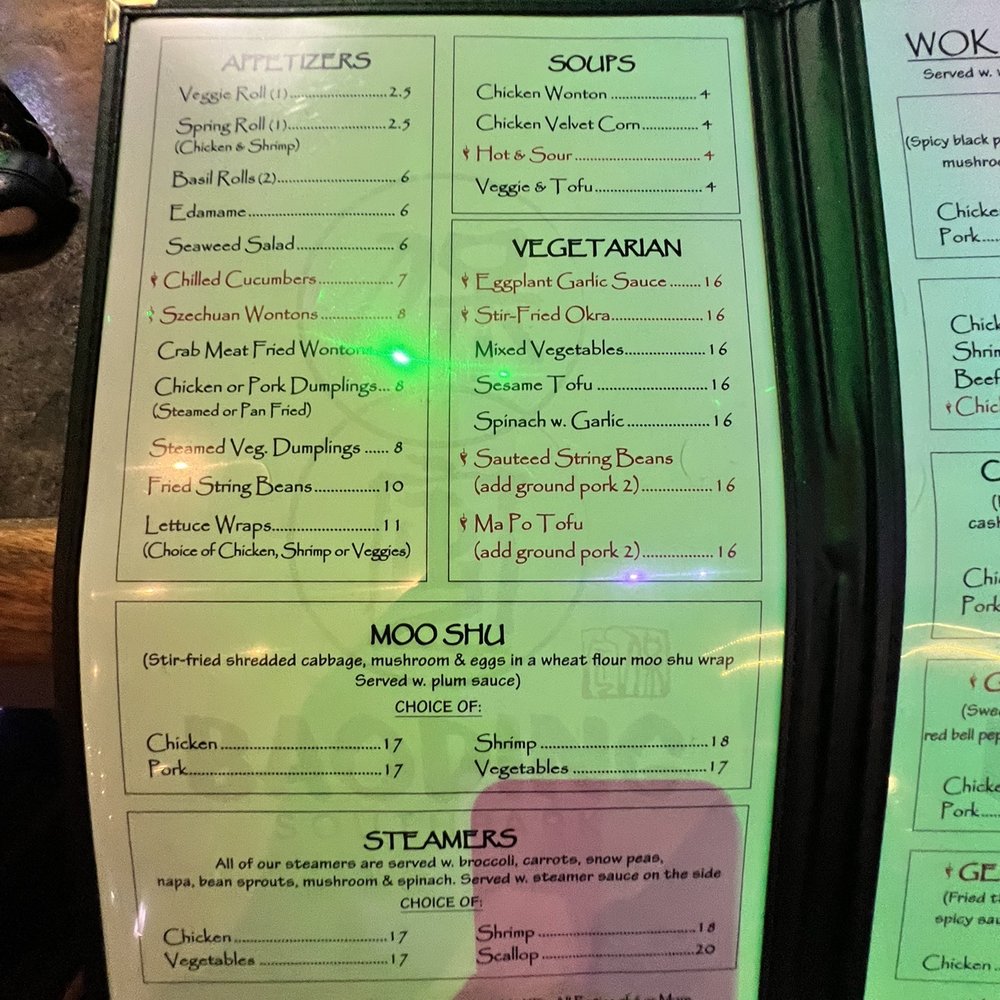 APPETIZERS
Veggie Roll (1) 2.5
Spring Roll (1) 2.5
(Chicken & Shrimp)
Basil Rolls (2) 6
Edamame 6
Seaweed Salad 6
Chilled Cucumbers 7
Szechuan Wontons 8
Crab Meat Fried Wontons
Chicken or Pork Dumplings... 8
(Steamed or Pan Fried)
Steamed Veg. Dumplings ...... 8
Fried String Beans 10
Lettuce Wraps 11
(Choice of Chicken, Shrimp or Veggies)
SOUPS
Chicken Wonton 4
Chicken Velvet Corn 4
Hot & Sour 4
Veggie & Tofu 4
VEGETARIAN
Eggplant Garlic Sauce 16
Stir-Fried Okra 16
Mixed Vegetables 16
Sesame Tofu 16
Spinach w. Garlic 16
Sauteed String Beans
(add ground pork 2) 16
Ma Po Tofu
(add ground pork 2) 16
MOO SHU
(Stir-fried shredded cabbage, mushroom & eggs in a wheat flour moo shu wrap
Served w. plum sauce)
CHOICE OF:
Chicken 17
Pork 17
Shrimp 18
Vegetables 17
STEAMERS
All of our steamers are served w. broccoli, carrots, snow peas,
napa, bean sprouts, mushroom & spinach. Served w. steamer sauce on the side
CHOICE OF:
Chicken 17
Vegetables 17
Shrimp 18
Scallop 20
WOK
Served w.
(Spicy black
Pork
Beef
Pork
(Swe
red bell
Pork
(Fried
spicy
Chicken